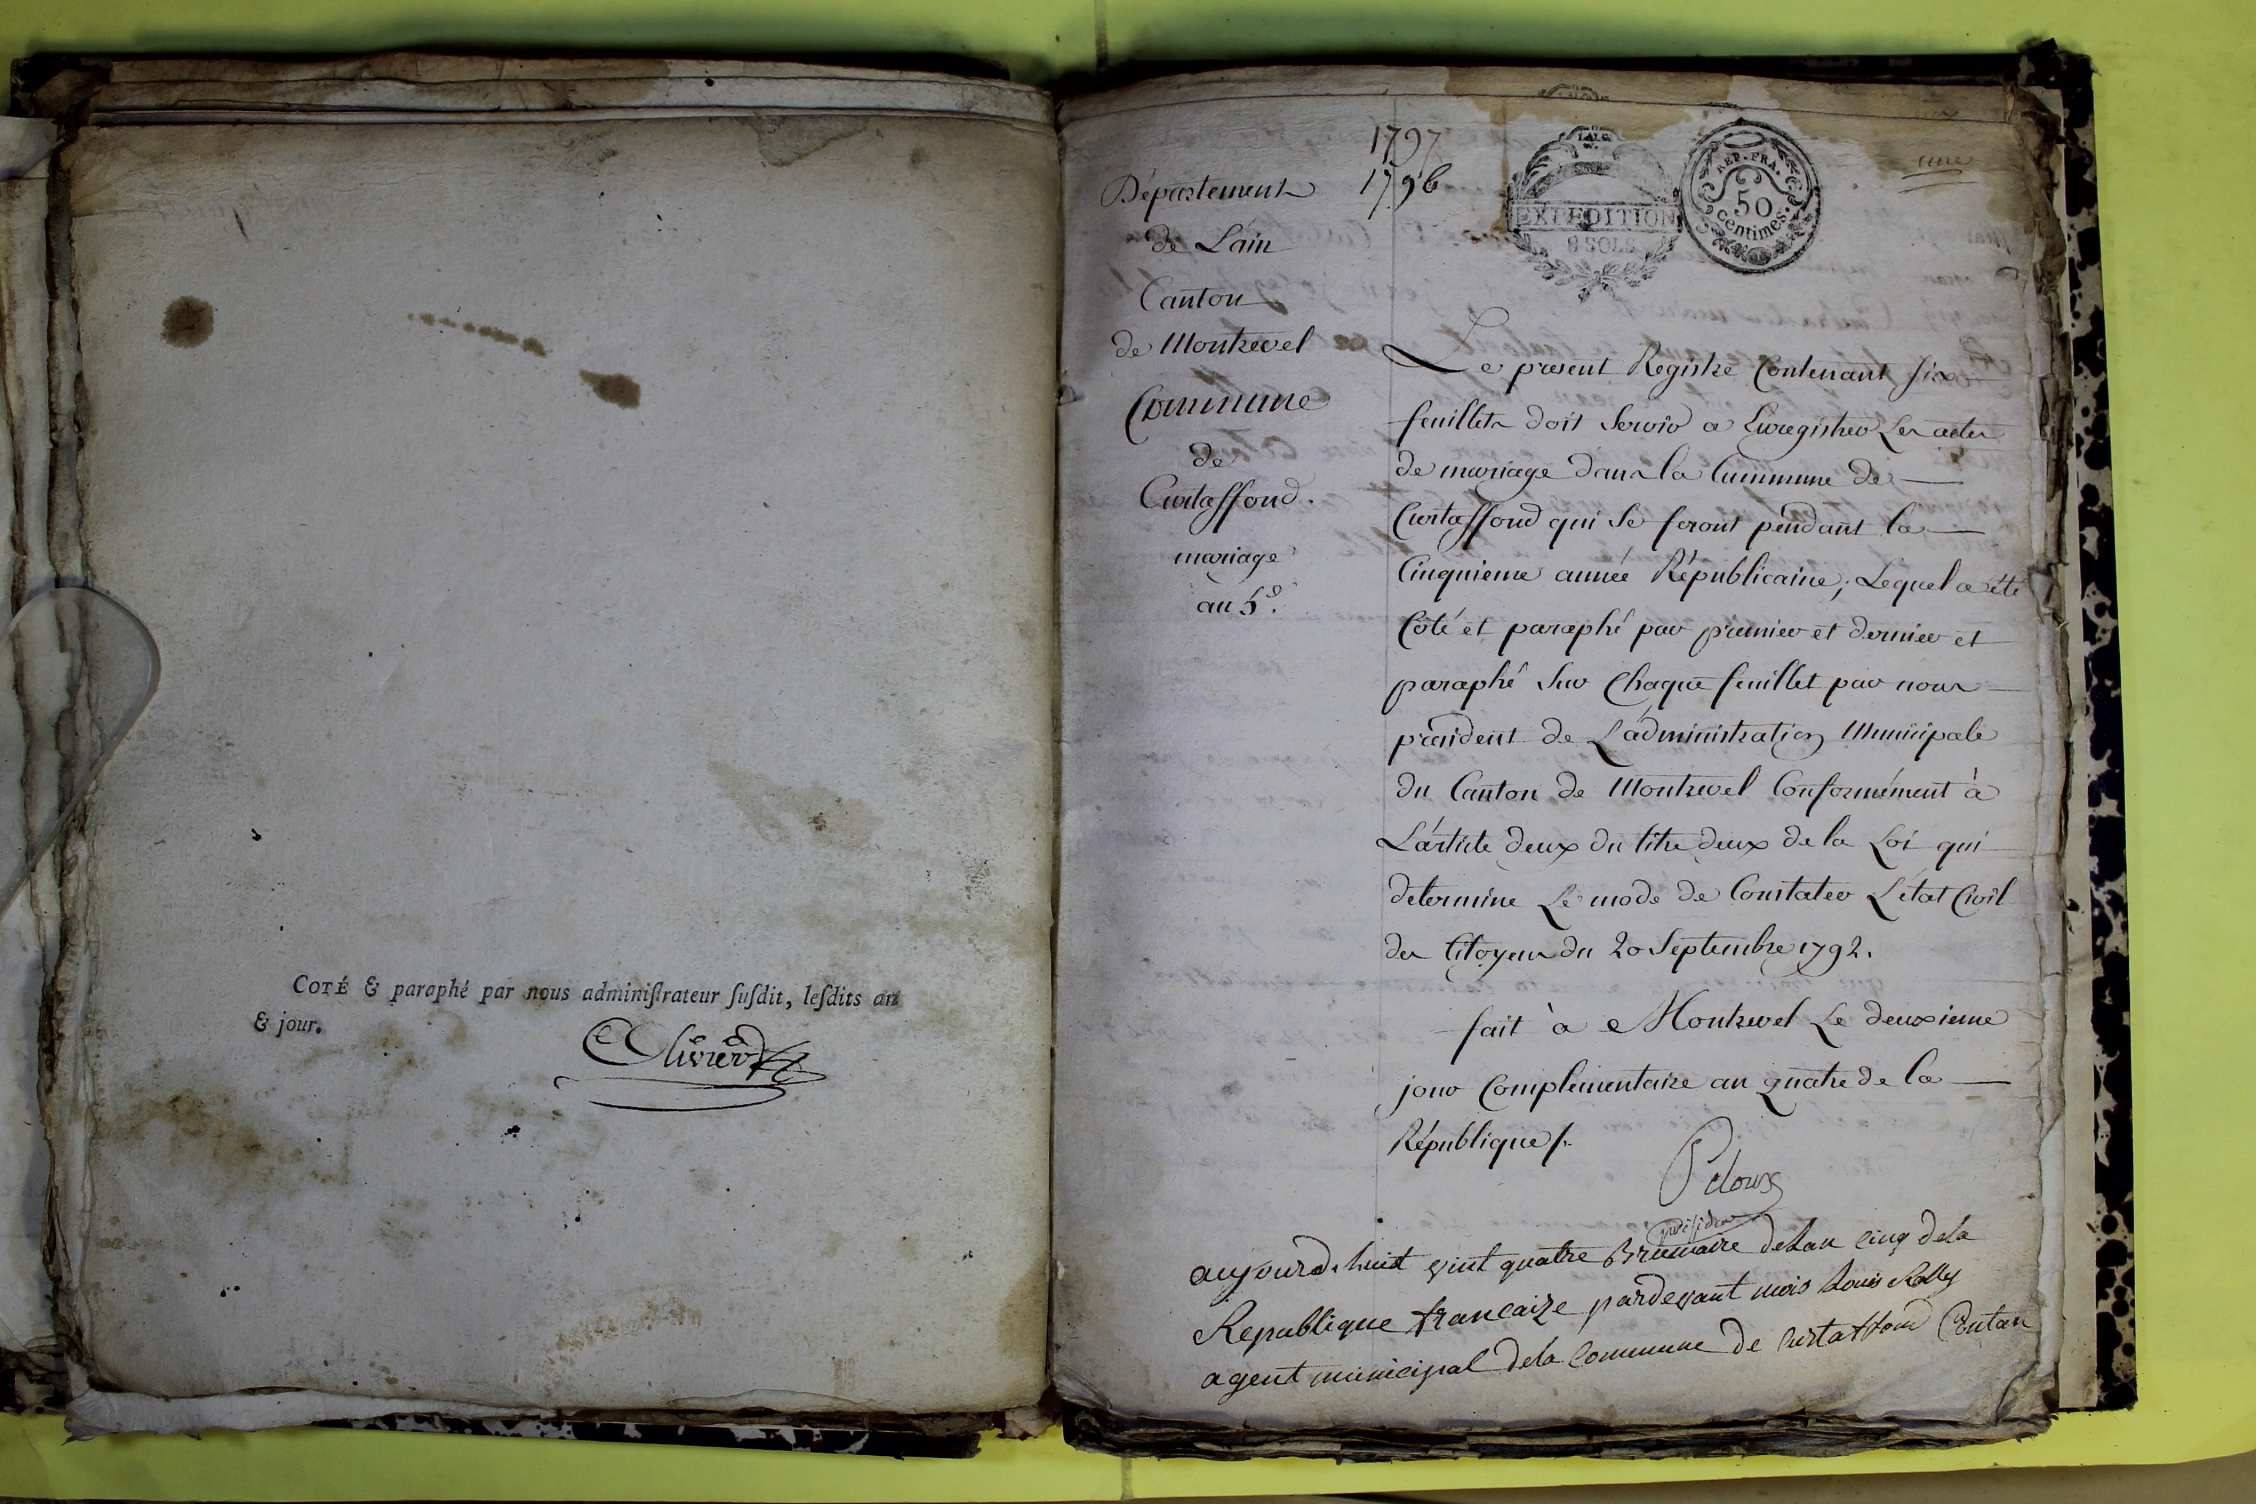 COTÉ & paraphé par nous adminiſtrateur ſuſdit, leſdits an
& jour.
Olivier
1797
1796
Département
de L'ain
Canton
de Montrevel
Commune
de
Curtaffond.
mariage
an 5e.
EXPEDITION
8 SOLS
REP. FRA.
50
centimes.
une
Le present Registre Contenant six
feuillets doit servir a Enregistrer Les actes
de mariage dans la Commune de
Curtaffond qui se feront pendant la
Cinquieme année Républicaine, Lequel a été
Coté et paraphé par premier et dernier et
paraphé sur Chaque feuillet par nous
président de L'administration Municipale
du Canton de Montrevel Conformément à
L'article deux du titre deux de la Loi qui
determine Le mode de Constater L'état Civil
des Citoyens du 20 Septembre 1792.
fait à Montrevel Le deuxieme
jour Complementaire an quatre de la
République /.
Peloux
président
aujourd.huit vint quatre Brumaire delan cinq dela
Republique francaize pardevant mois Louis
agent municipal dela Commune de Curtaffond Contan